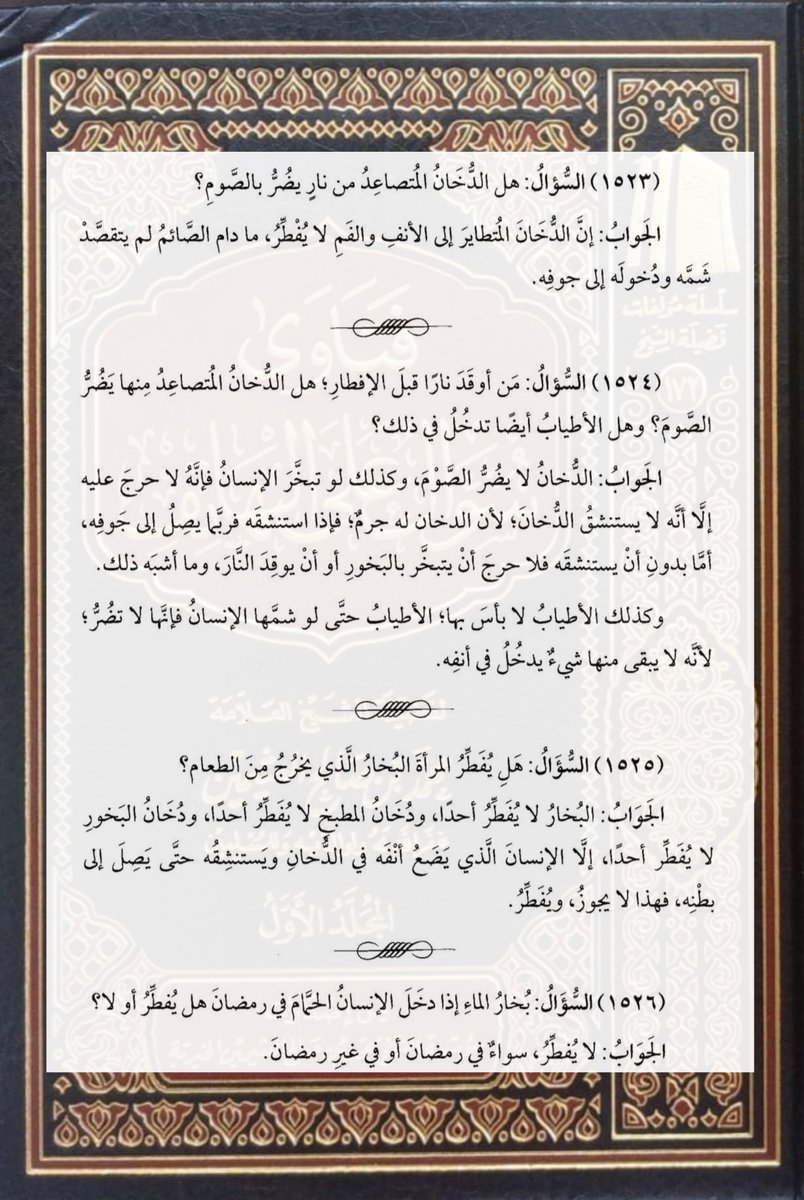 (١٥٢٣) السُّؤالُ: هل الدُّخَانُ المُتصاعِدُ من نارٍ يضُرُّ بالصَّومِ؟
الجَوابُ: إنَّ الدُّخَانَ المُتطايرَ إلى الأنفِ والفَمِ لا يُفْطِّرُ، ما دام الصَّائمُ لم يتقصَّدْ
شَمَّه ودُخولَه إلى جوفِه.
(١٥٢٤) السُّؤالُ: مَن أوقَدَ نارًا قبلَ الإفطارِ؛ هل الدُّخانُ المُتصاعدُ مِنها يَضُرُّ
الصَّومَ؟ وهل الأطيابُ أيضًا تدخُلُ في ذلك؟
الجَوابُ: الدُّخانُ لا يضُرُّ الصَّوْمَ، وكذلك لو تبخَّرَ الإنسانُ فإنَّهُ لا حرجَ عليه
إلَّا أنَّه لا يستنشقُ الدُّخانَ؛ لأن الدخان له جرمٌ؛ فإذا استنشقَه فربَّما يصِلُ إلى جَوفِه،
أمَّا بدونِ أنْ يستنشقَه فلا حرجَ أنْ يتبخَّر بالبَخورِ أو أنْ يوقِدَ النَّارَ، وما أشبَه ذلك.
وكذلك الأطيابُ لا بأسَ بها؛ الأطيابُ حتَّى لو شمَّها الإنسانُ فإنَّها لا تضُرُّ؛
لأنَّه لا يبقى منها شيءٌ يدخُلُ في أنفِه.
(١٥٢٥) السُّؤَالُ: هَلِ يُفَطِّرُ المرأةَ البُخارُ الَّذي يخرُجُ مِنَ الطعام؟
الجَوَابُ: البُخارُ لا يُفَطِّرُ أحدًا، ودُخَانُ المطبخِ لا يُفَطِّرُ أحدًا، ودُخَانُ البَخورِ
لا يُفَطِّر أحدًا، إلَّا الإنسانَ الَّذي يَضَعُ أنْفَه في الدُّخانِ ويَستنشِقُه حتَّى يَصِلَ إلى
بطْنِه، فهذا لا يجوزُ، ويُفَطِّرُ.
(١٥٢٦) السُّؤَالُ: بُخارُ الماءِ إذا دخَلَ الإنسانُ الحَمَّامَ في رمضانَ هل يُفطِّرُ أو لا؟
الجَوَابُ: لا يُفطِّرُ، سواءٌ في رمضانَ أو في غيرِ رمضانَ.
سلسلة مؤلفات
فضيلة الشيخ
١٧٢
فتاوى
المجلد الأول